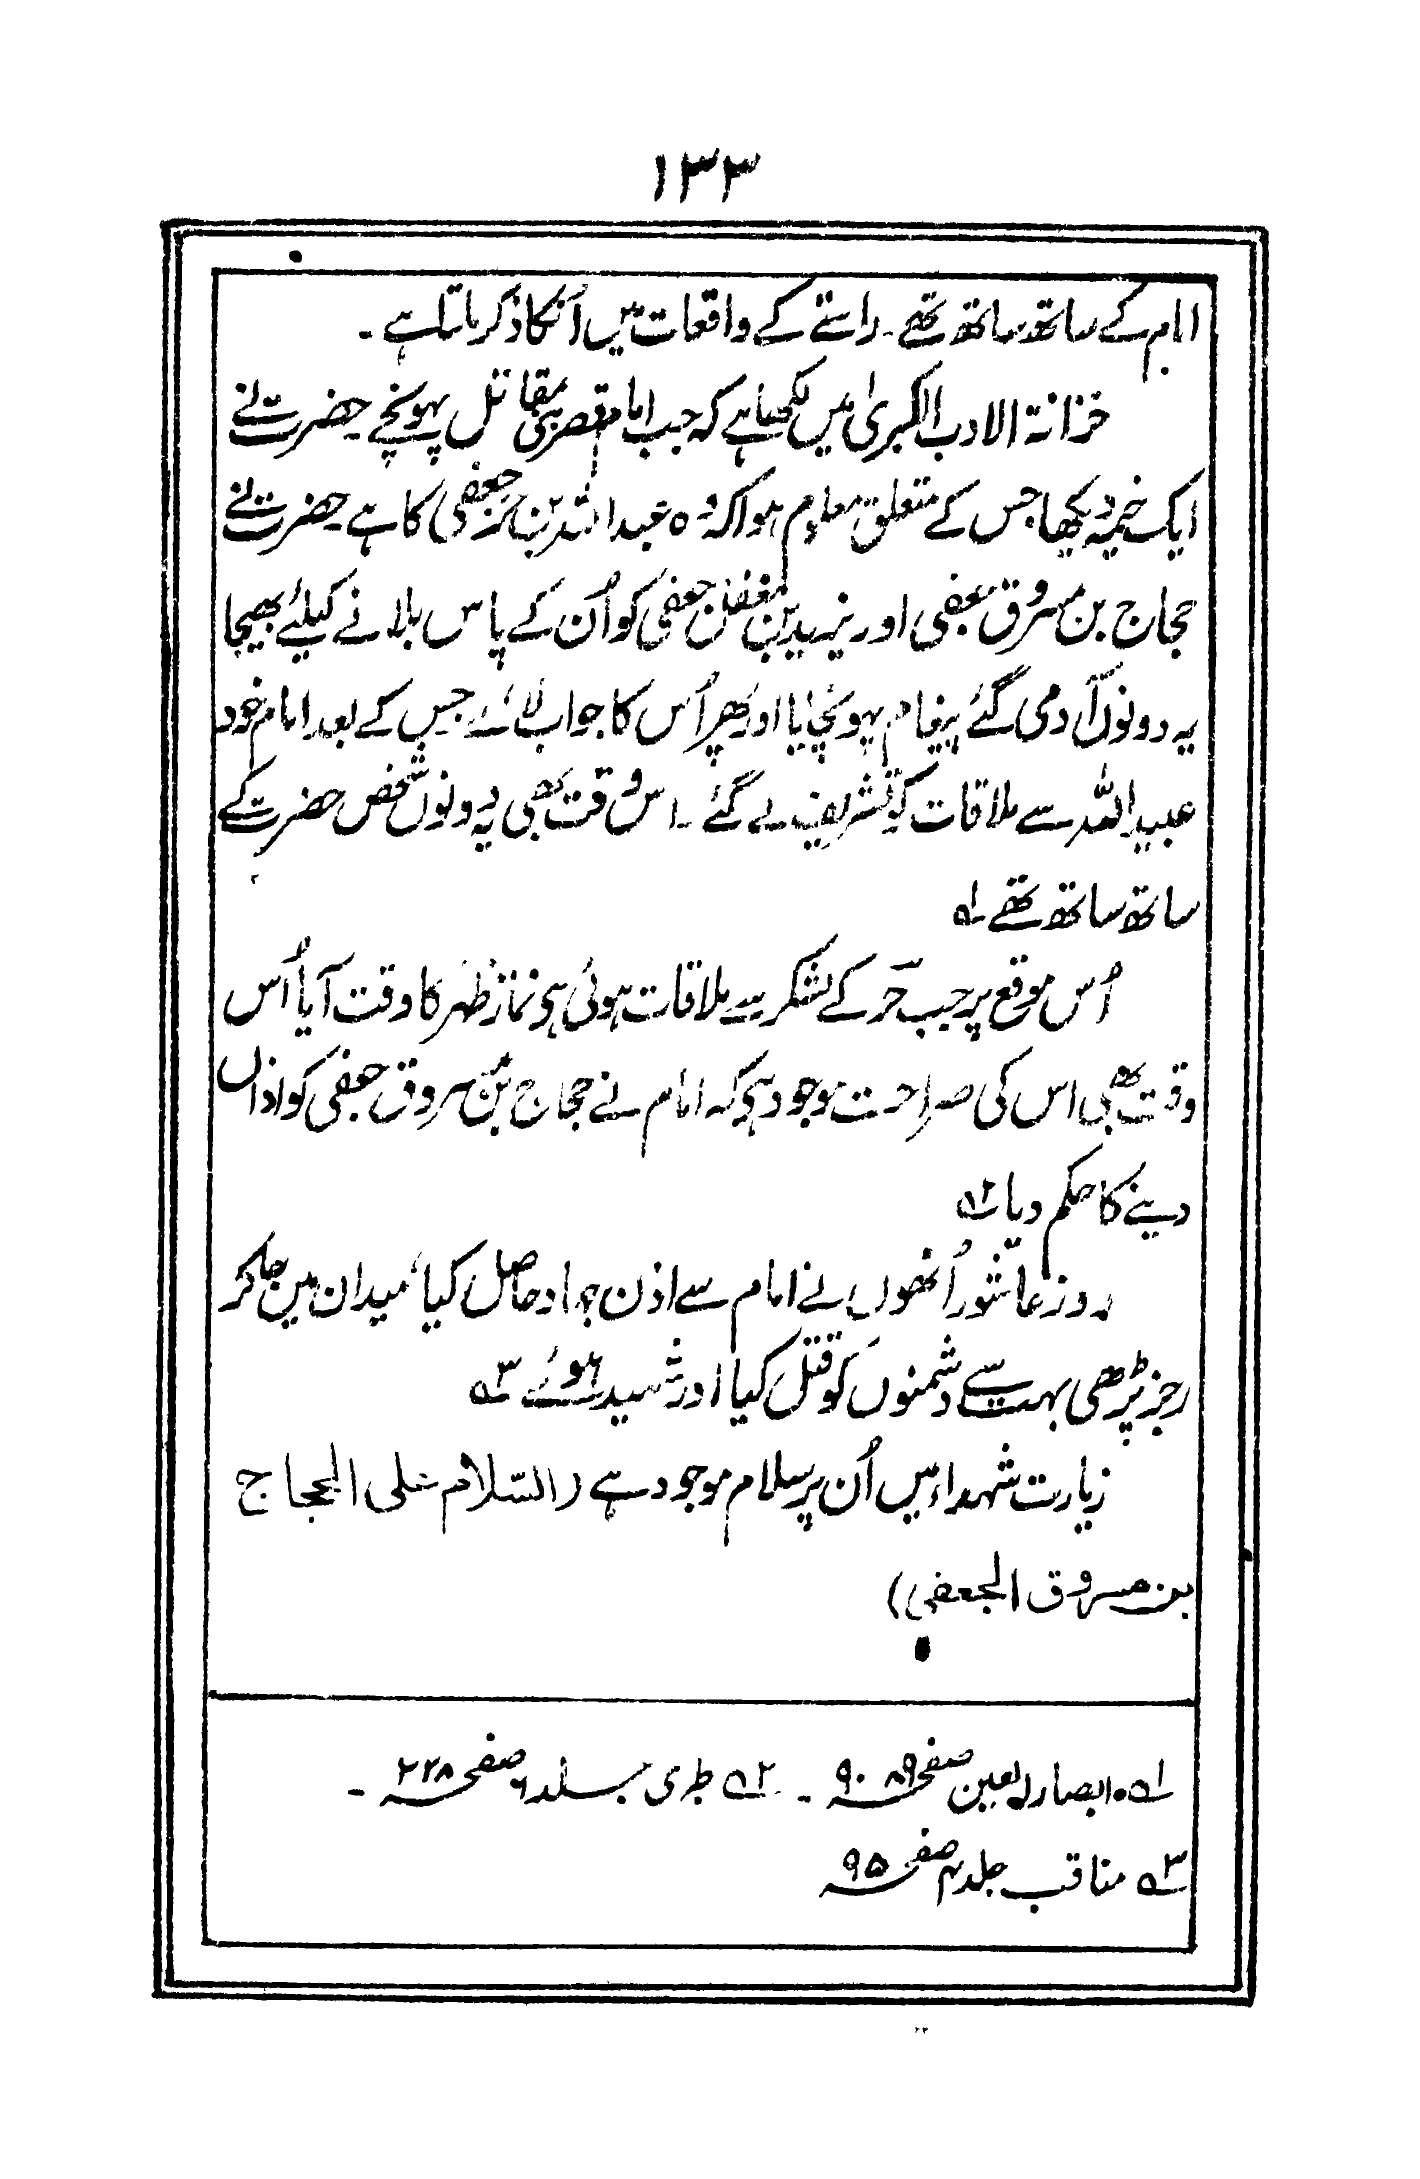 ۱۳۳
امام کے ساتھ ساتھ تھے۔ راستے کے واقعات میں اُنکا ذکر ملتا ہے۔
خزانۃ الادب الکبریٰ میں لکھا ہے کہ جب امام قصر بنی مقاتل پہونچے حضرت نے
ایک خیمہ دیکھا جس کے متعلق معلوم ہوا کہ وہ عبداللہ بن حر جعفی کا ہے حضرت نے
حجاج بن مسروق جعفی اور یزید بن مغفل جعفی کو اُن کے پاس بلانے کیلئے بھیجا
یہ دونوں آدمی گئے پیغام پہونچایا اور پھر اُس کا جواب لائے جس کے بعد امام خود
عبیداللہ سے ملاقات کو تشریف لے گئے ۔ اس وقت بھی یہ دونوں شخص حضرت کے
ساتھ ساتھ تھے ؎۱
اُس موقع پر جب حر کے لشکر سے ملاقات ہوئی ہے نماز ظہر کا وقت آیا اُس
وقت بھی اس کی صراحت موجود ہے کہ امام نے حجاج بن مسروق جعفی کو اذاں
دینے کا حکم دیا ؎۲
روز عاشور اُنھوں نے امام سے اذن جہاد حاصل کیا، میدان میں جاکر
رجز پڑھی بہت سے دشمنوں کو قتل کیا اور شہید ہوئے ؎۳
زیارت شہداء میں اُن پر سلام موجود ہے (السّلام علی الحجاج
بن مسروق الجعفی)
؎۱ ابصار العین صفحہ ۸۹، ۹۰ ۔ ؎۲ طبری جلد ۶ صفحہ ۲۲۸ ۔
؎۳ مناقب جلد ۴ صفحہ ۹۵